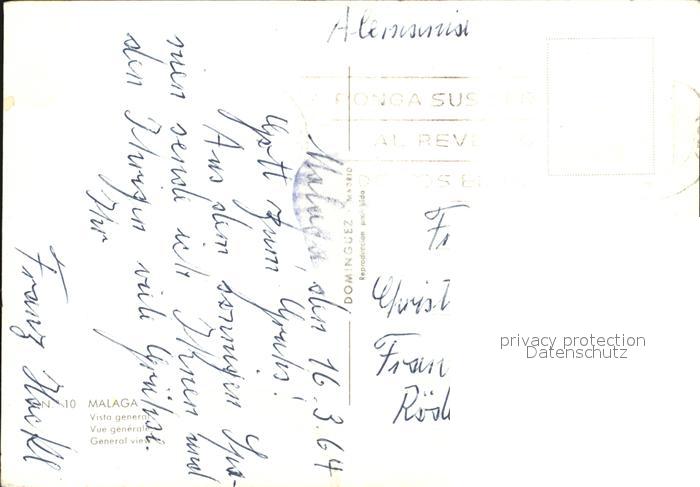 Alemania
PONGA SUS
AL REVE
Malaga, den 16.3.64
Gott zum Gruß!
Aus dem sonnigen Spa-
nien sende ich Ihnen und
den Ihrigen viele Grüße.
Ihr
Franz
DOMINGUEZ - MADRID
Reproducción prohibida
Fr
Christ
Fran
Röd
privacy protection
Datenschutz
N.º 10 MALAGA
Vista general
Vue générale
General view